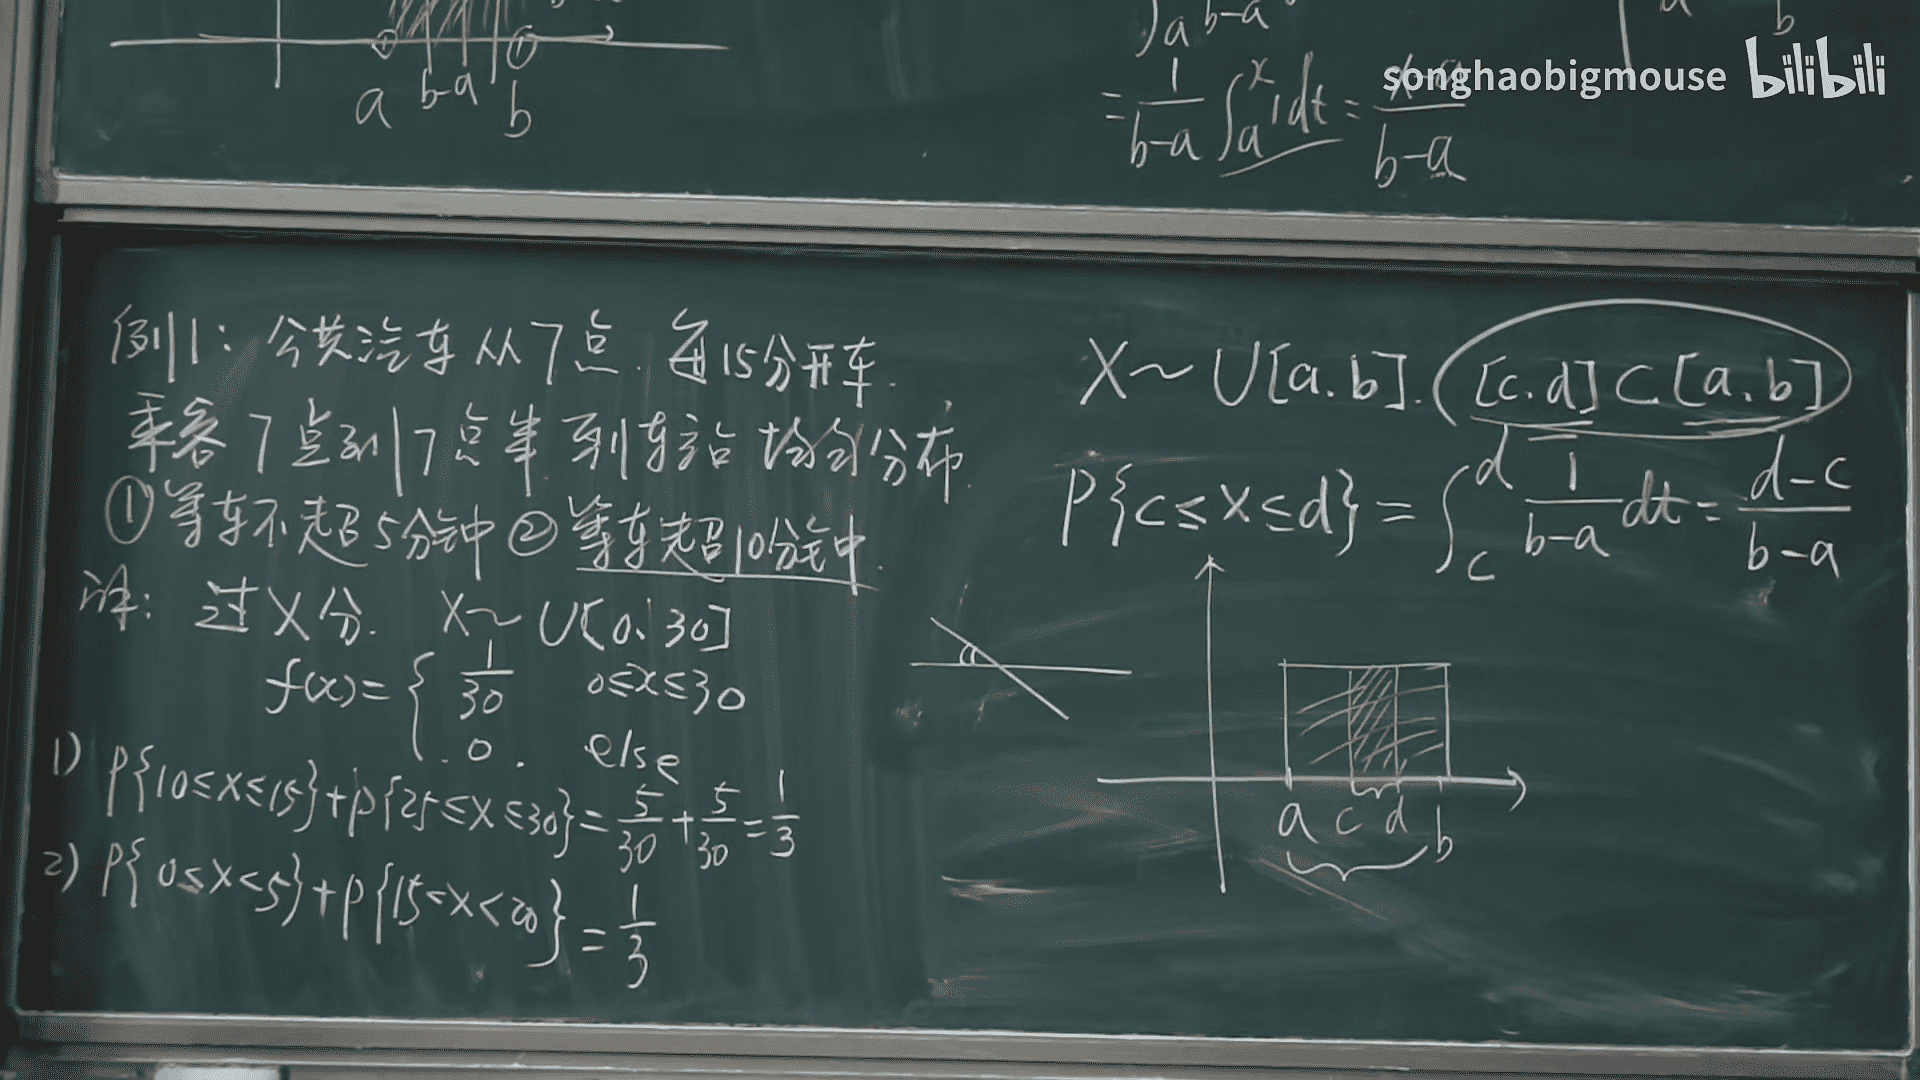 a b-a b
∫a b-a
= 1/(b-a) ∫_a^x 1dt = (x-a)/(b-a)
a b
songhaobigmouse bilibili
例1: 公共汽车从7点.每15分开车.
乘客7点到7点半到车站 均匀分布.
①等车不超5分钟 ②等车超10分钟.
过X分. X~U[0,30]
f(x)= { 1/30 0≤x≤30
0. else
1) P{10≤X≤15}+P{25≤X≤30}=5/30+5/30=1/3
2) P{0≤X<5}+P{15<X<20}=1/3
X~U[a.b]. [c.d]⊂[a.b]
P{c≤X≤d}=∫_c^d 1/(b-a) dt=(d-c)/(b-a)
a c d b